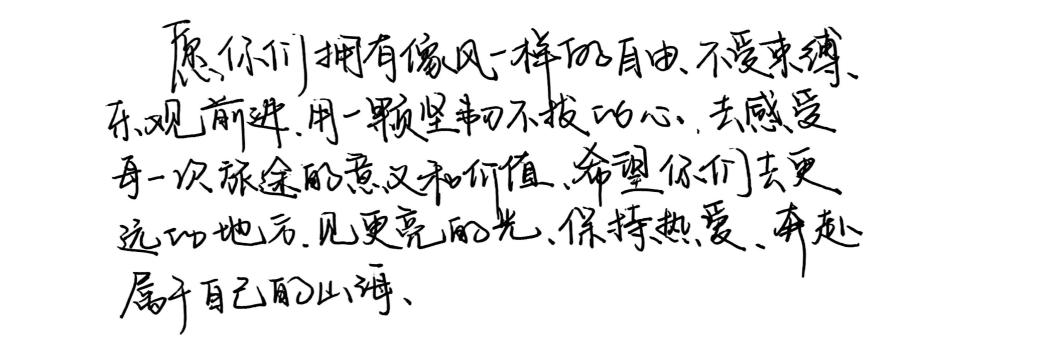 愿你们拥有像风一样的自由、不受束缚、
乐观前进、用一颗坚韧不拔的心、去感受
每一次旅途的意义和价值、希望你们去更
远的地方、见更亮的光、保持热爱、奔赴
属于自己的山海、